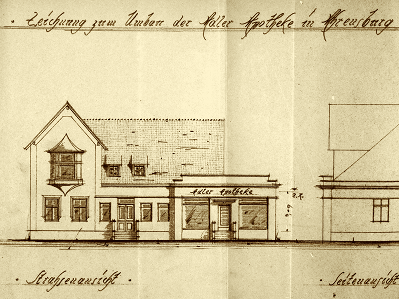 · Zeichnung zum Umbau der Adler Apotheke in Ahrensburg
Adler Apotheke
· Strahsenansicht ·
· Seitenansicht